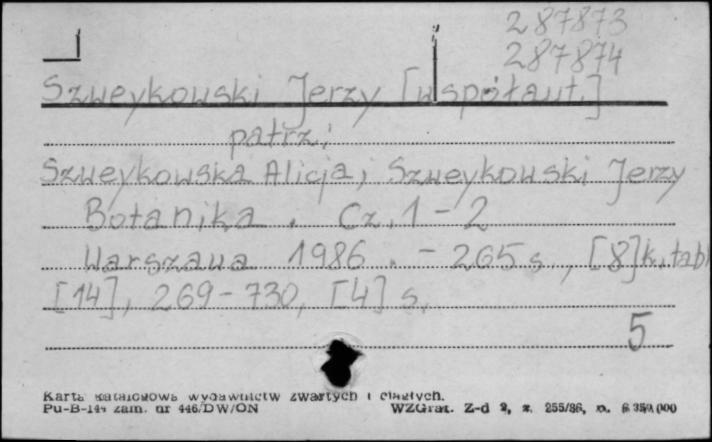 287873
287874
Szweykowski Jerzy [współaut.]
patrz:
Szweykowska Alicja, Szweykowski Jerzy
Botanika. Cz. 1-2
Warszawa 1986. - 265 s., [8] k. tabl
[14], 269-730, [4] s.
5
Karta katalogowa wydawnictw zwartych i ciągłych.
Pu-B-144 zam. nr 446/DW/ON WZGraf. Z-d 2, z. 255/86, n. 6 350 000